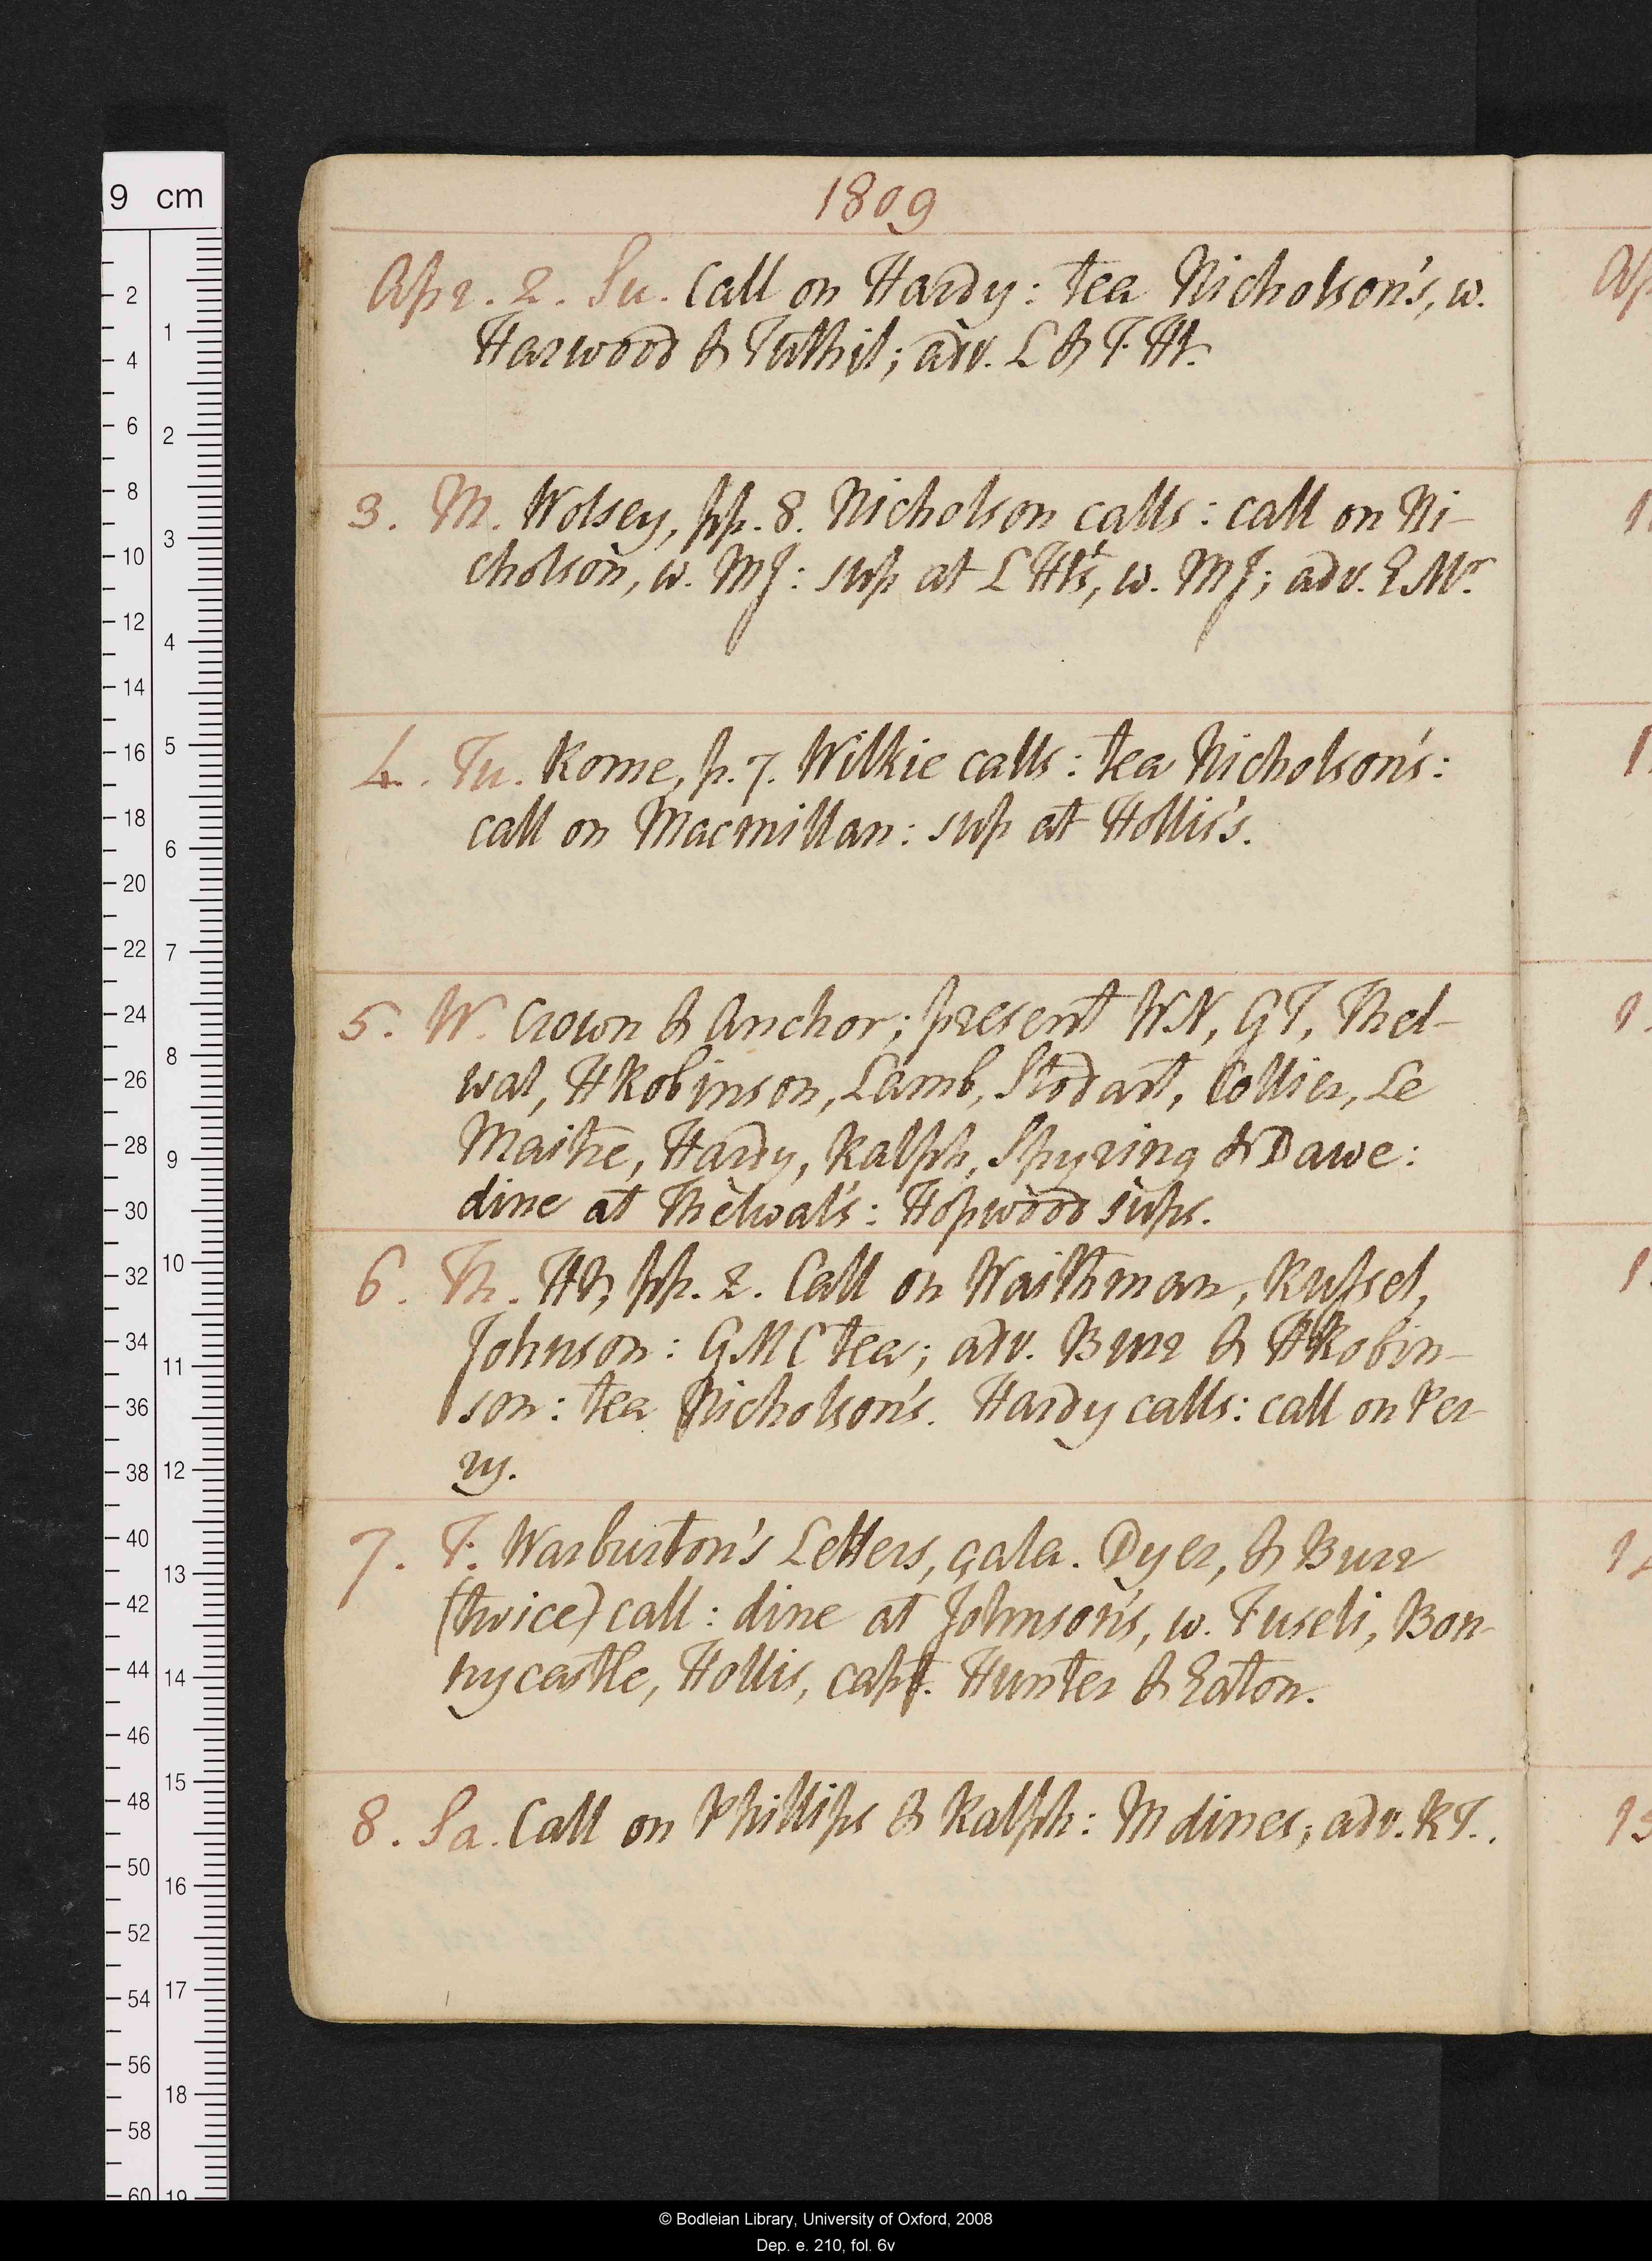 1809
Apr. 2. Su. Call on Hardy: tea Nicholson's, w.
Harwood & Tuthil; adv. L & T. Ht.
3. M. Wolsey, pp. 8. Nicholson calls: call on Ni-
cholson, w. MJ: sup at L Ht's, w. MJ; adv. E Mr.
4. Tu. Rome, p. 7. Wilkie calls: tea Nicholson's:
call on Macmillan: sup at Hollis's.
5. W. Crown & Anchor; present WN, GT, Thel-
wal, HRobinson, Lamb, Stodart, Collier, Le
Maitre, Hardy, Ralph, Spyring & Dawe:
dine at Thelwal's: Hopwood sups.
6. Th. pp. 2. Call on Waithman, Russel,
Johnson: GMC tea; adv. Burr & HRobin-
son: tea Nicholson's. Hardy calls: call on Per
ry.
7. F. Warburton's Letters, çala. Dyer, & Burr
(twice) call: dine at Johnson's, w. Fuseli, Bon-
nycastle, Hollis, capt. Hunter & Eaton.
8. Sa. Call on Phillips & Ralph: M dines; adv. RT..
© Bodleian Library, University of Oxford, 2008
Dep. e. 210, fol. 6v